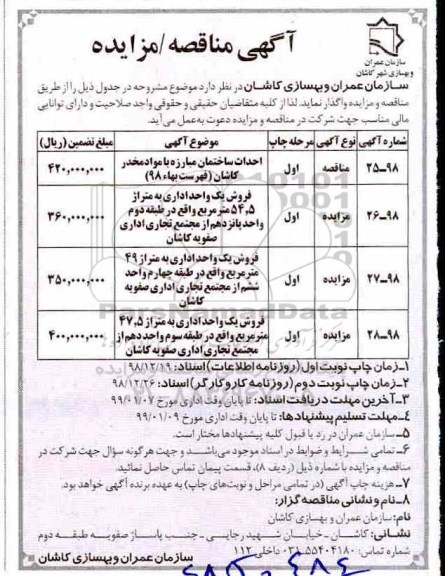 آگهی مناقصه/مزایده
سازمان عمران
و بهسازی شهر کاشان
سازمان عمران و بهسازی کاشان در نظر دارد موضوع مشروحه در جدول ذیل را از طریق
مناقصه و مزایده واگذار نماید. لذا از کلیه متقاضیان حقیقی و حقوقی واجد صلاحیت و دارای توانایی
مالی مناسب جهت شرکت در مناقصه و مزایده دعوت به عمل می‌آید.
شماره آگهی نوع آگهی مرحله چاپ موضوع آگهی مبلغ تضمین (ریال)
۹۸-۲۵ مناقصه اول احداث ساختمان مبارزه با مواد مخدر ۴۲۰,۰۰۰,۰۰۰
کاشان (فهرست بهاء ۹۸)
فروش یک واحد اداری به متراژ
۹۸-۲۶ مزایده اول ۵۴,۵ متر مربع واقع در طبقه دوم ۳۶۰,۰۰۰,۰۰۰
واحد پانزدهم از مجتمع تجاری اداری
صفویه کاشان
فروش یک واحد اداری به متراژ ۴۹
۹۸-۲۷ مزایده اول مترمربع واقع در طبقه چهارم واحد ۳۵۰,۰۰۰,۰۰۰
ششم از مجتمع تجاری اداری صفویه
کاشان
فروش یک واحد اداری به متراژ ۴۷,۵
۹۸-۲۸ مزایده اول مترمربع واقع در طبقه سوم واحد دهم از ۴۰۰,۰۰۰,۰۰۰
مجتمع تجاری اداری صفویه کاشان
۱-زمان چاپ نوبت اول (روزنامه اطلاعات) اسناد: ۹۸/۱۲/۱۹
۲-زمان چاپ نوبت دوم (روزنامه کار و کارگر) اسناد: ۹۸/۱۲/۲۶
۳-آخرین مهلت دریافت اسناد: تا پایان وقت اداری مورخ ۹۹/۰۱/۰۷
۴-مهلت تسلیم پیشنهادها: تا پایان وقت اداری مورخ ۹۹/۰۱/۰۹
۵-سازمان عمران در رد یا قبول کلیه پیشنهادها مختار است.
۶-تمامی شرایط و ضوابط در اسناد موجود می‌باشد و جهت هرگونه سؤال جهت شرکت در
مناقصه و مزایده با شماره ذیل (ردیف ۸)، قسمت پیمان تماس حاصل نمائید.
۷-هزینه چاپ آگهی (در تمامی مراحل و نوبت‌های چاپ) به عهده برنده آگهی خواهد بود.
۸-نام و نشانی مناقصه گزار:
نام: سازمان عمران و بهسازی کاشان
نشانی: کاشان - خیابان شهید رجایی - جنب پاساژ صفویه طبقه دوم
شماره تماس: ۵۵۴۰۴۱۸۰-۰۳۱ داخلی ۱۱۲
سازمان عمران و بهسازی کاشان